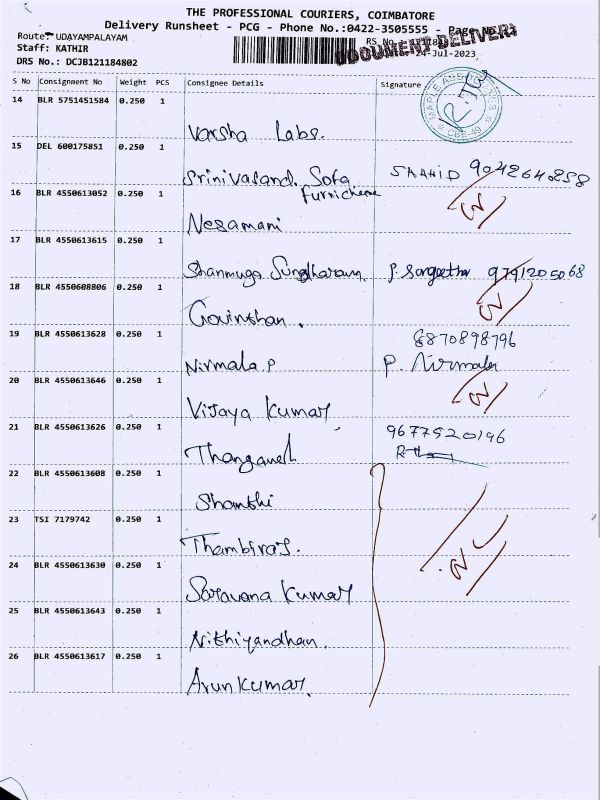 THE PROFESSIONAL COURIERS, COIMBATORE
Delivery Runsheet - PCG - Phone No.:0422-3505555 - Page No.
Route: UDAYAMPALAYAM
DOCUMENT DELIVERY
Staff: KATHIR
24-Jul-2023
DRS No.: DCJB121184802
S No Consignment No Weight PCS Consignee Details Signature
MAPLE ASSOCIATES
CBE-49
14 BLR 5751451584 0.250 1
Varsha Labs.
15 DEL 600175851 0.250 1
Srinivasand. Sofa SHAHID 9042640258
furnicheme
16 BLR 4550613052 0.250 1
Nesamani
17 BLR 4550613615 0.250 1
Shanmuga Sundharam. P. Sangeetha 9791205068
18 BLR 4550608806 0.250 1
Govinthan.
19 BLR 4550613628 0.250 1 8870898796
Nirmala.P P. Nirmala
20 BLR 4550613646 0.250 1
Vijaya Kumar
21 BLR 4550613626 0.250 1 9677520196
Thangavel
22 BLR 4550613608 0.250 1
Shanthi
23 TSI 7179742 0.250 1
Thambiraj.
24 BLR 4550613630 0.250 1
Saravana Kumar
25 BLR 4550613643 0.250 1
Nithiyandhan.
26 BLR 4550613617 0.250 1
Arunkumar.